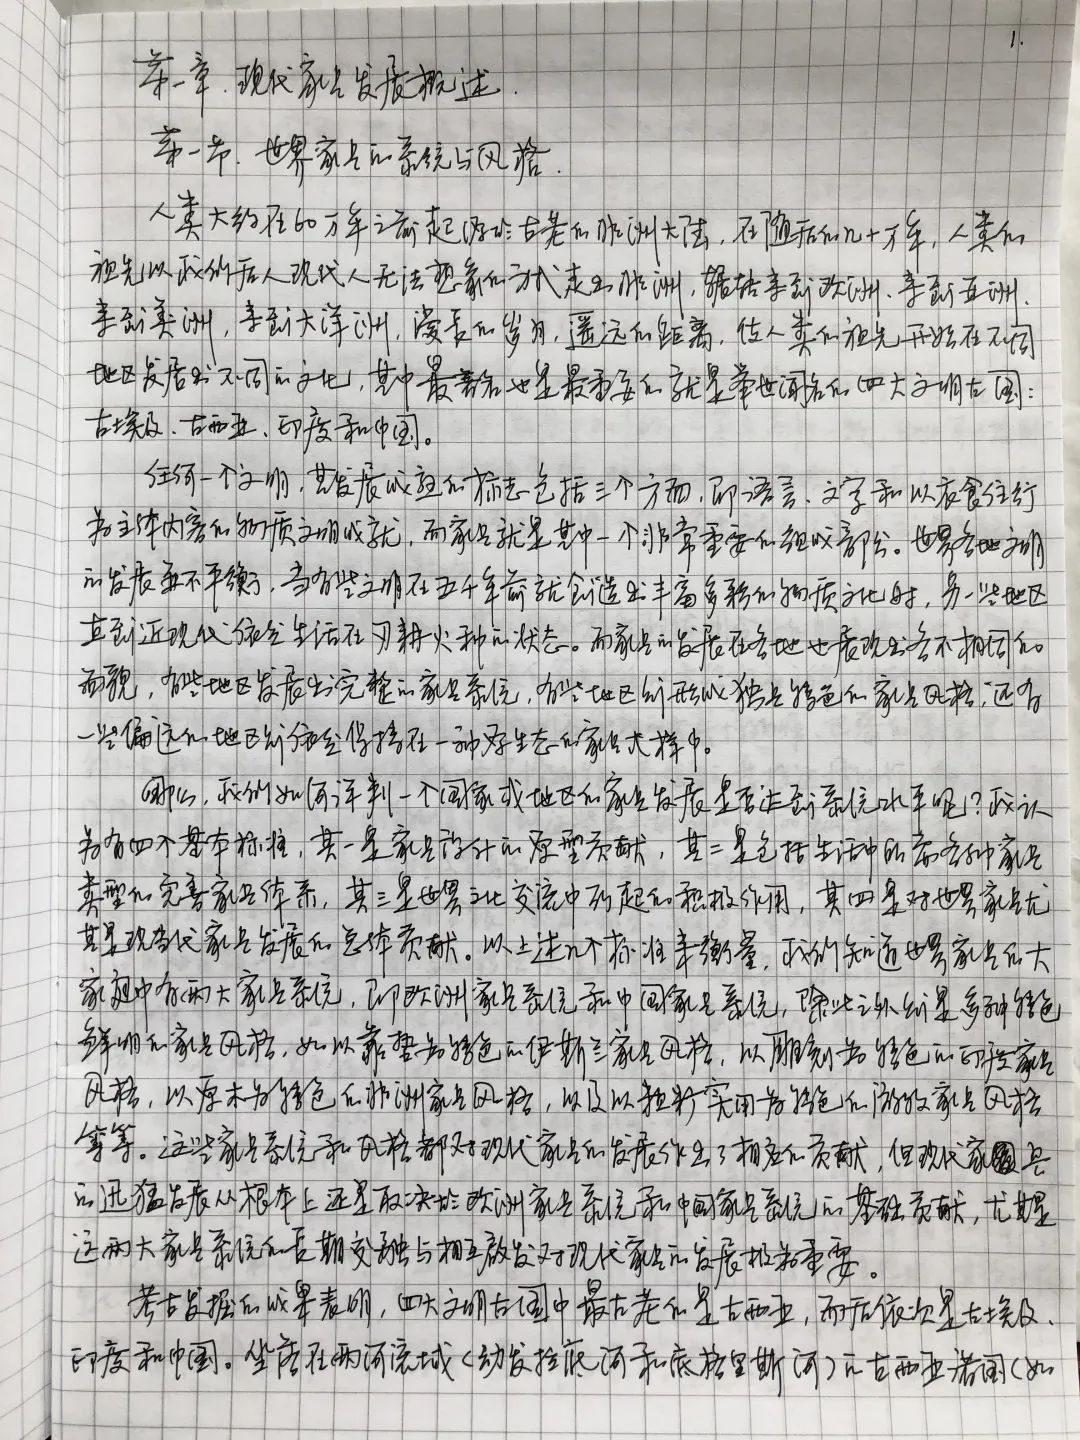 1.
第一章.现代家具发展概述.
第一节.世界家具的系统与风格.
人类大约在60万年之前起源于古老的非洲大陆,在随后的几十万年,人类的
祖先以我们后人现代人无法想象的方式走出非洲,辗转来到欧洲、来到亚洲、
来到美洲,来到大洋洲,漫长的岁月,遥远的距离,使人类的祖先开始在不同
地区发展出不同的文化,其中最著名也是最重要的就是举世闻名的四大文明古国:
古埃及、古西亚、印度和中国。
任何一个文明,其发展成熟的标志包括三个方面,即语言、文字和以衣食住行
为主体内容的物质文明成就,而家具就是其中一个非常重要的组成部分。世界各地文明
的发展并不平衡,当有些文明在五千年前就创造出丰富多彩的物质文化时,另一些地区
直到近现代依然生活在刀耕火种的状态。而家具的发展在各地也展现出各不相同的
面貌,有些地区发展出完整的家具系统,有些地区则形成独具特色的家具风格,还有
一些偏远的地区则依然保持在一种原生态的家具大样中。
那么,我们如何评判一个国家或地区的家具发展是否达到系统水平呢?我认
为有四个基本标准,其一是家具设计的原型贡献,其二是包括生活中所需各种家具
类型的完善家具体系,其三是世界文化交流中所起的积极作用,其四是对世界家具尤
其是现当代家具发展的总体贡献。以上述几个标准来衡量,我们知道世界家具的大
家庭中有两大家具系统,即欧洲家具系统和中国家具系统,除此之外则是多种特色
鲜明的家具风格,如以靠垫为特色的伊斯兰家具风格,以雕刻为特色的印度家具
风格,以原木为特色的非洲家具风格,以及以粗犷实用为特色的游牧家具风格
等等。这些家具系统和风格都对现代家具的发展作出了相应的贡献,但现代家具
的迅猛发展从根本上还是取决于欧洲家具系统和中国家具系统的基础贡献,尤其是
这两大家具系统的长期交融与相互启发对现代家具的发展极为重要。
考古发掘的成果表明,四大文明古国中最古老的是古西亚,而后依次是古埃及、
印度和中国。坐落在两河流域(幼发拉底河和底格里斯河)的古西亚诸国(如